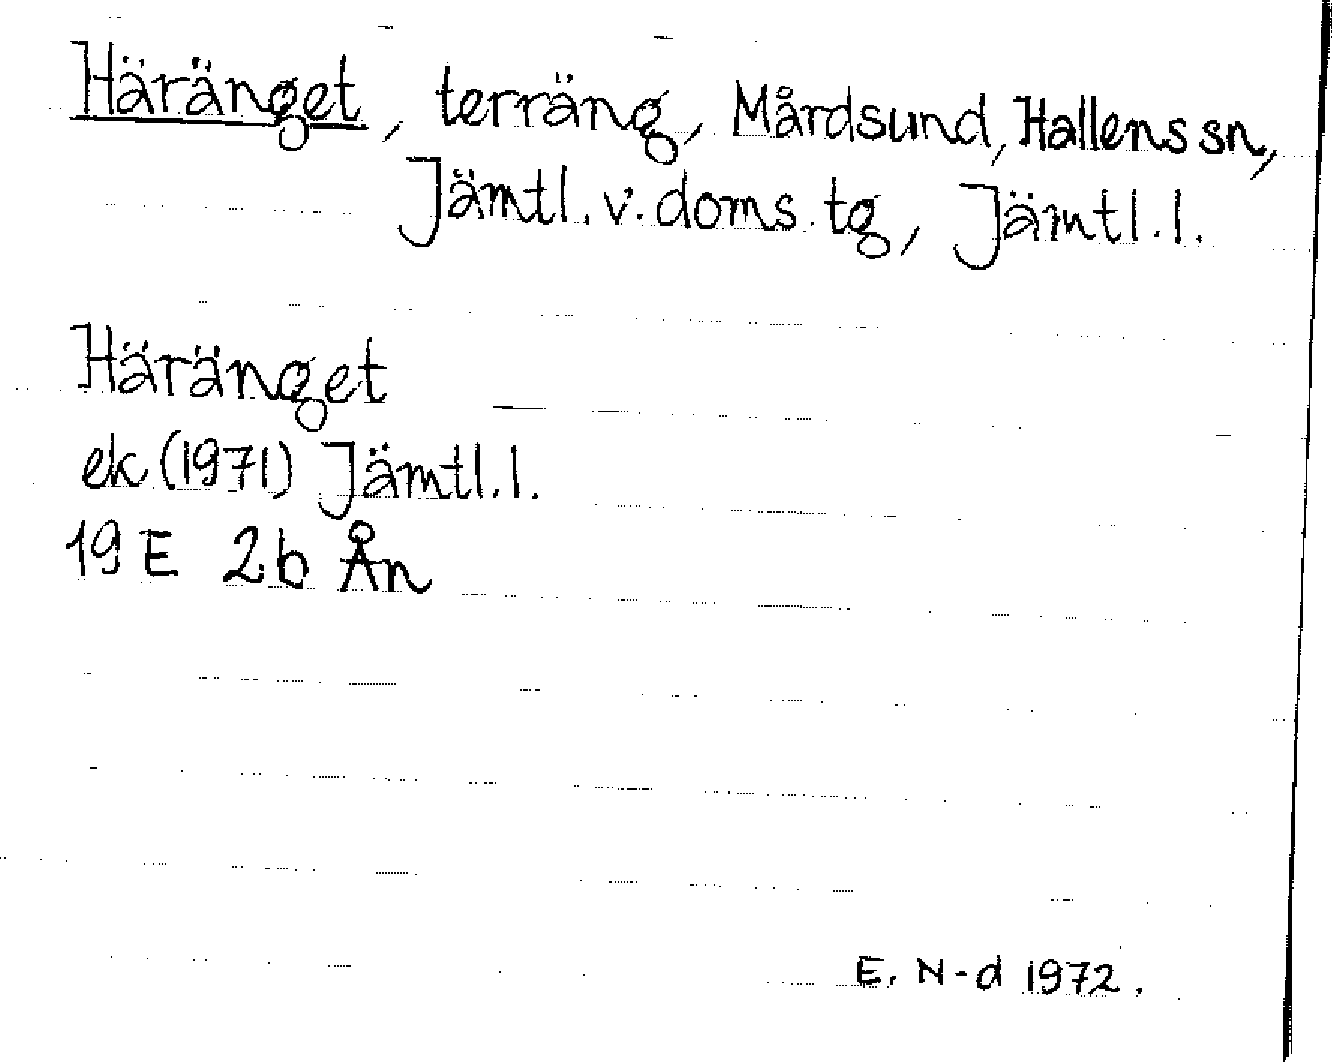 Häränget, terräng, Mårdsund, Hallens sn,
Jämtl. v. doms. tg, Jämtl. l.
Häränget
ek (1971) Jämtl. l.
19 E 2 b Ån
E. N-d 1972.